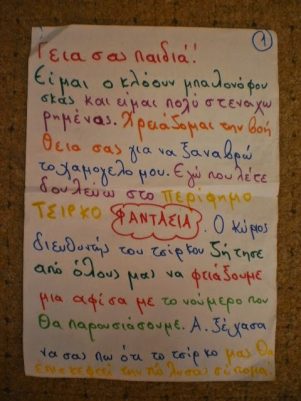 1
Γεια σας παιδιά!!
Είμαι ο κλόουν μπαλονόφου
σκας και είμαι πολύ στεναχω
ρημένας. Χρειάζομαι την βοή
θεια σας για να ξαναβρώ
το χαμόγελο μου. Εγώ που λέτε
δουλεύω στο περίφημο
ΤΣΙΡΚΟ ΦΑΝΤΑΣΙΑ. Ο κύριος
διευθυντής του τσίρκου ζήτησε
από όλους μας να φτιάξουμε
μια αφίσα με το νούμερο που
θα παρουσιάσουμε. Α. ξέχασα
να σας πω ότι το τσίρκο μας θα
επισκεφτεί την πόλη σας σε